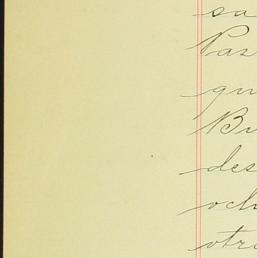 sa
Pas
qu
Bu
des
och
otr